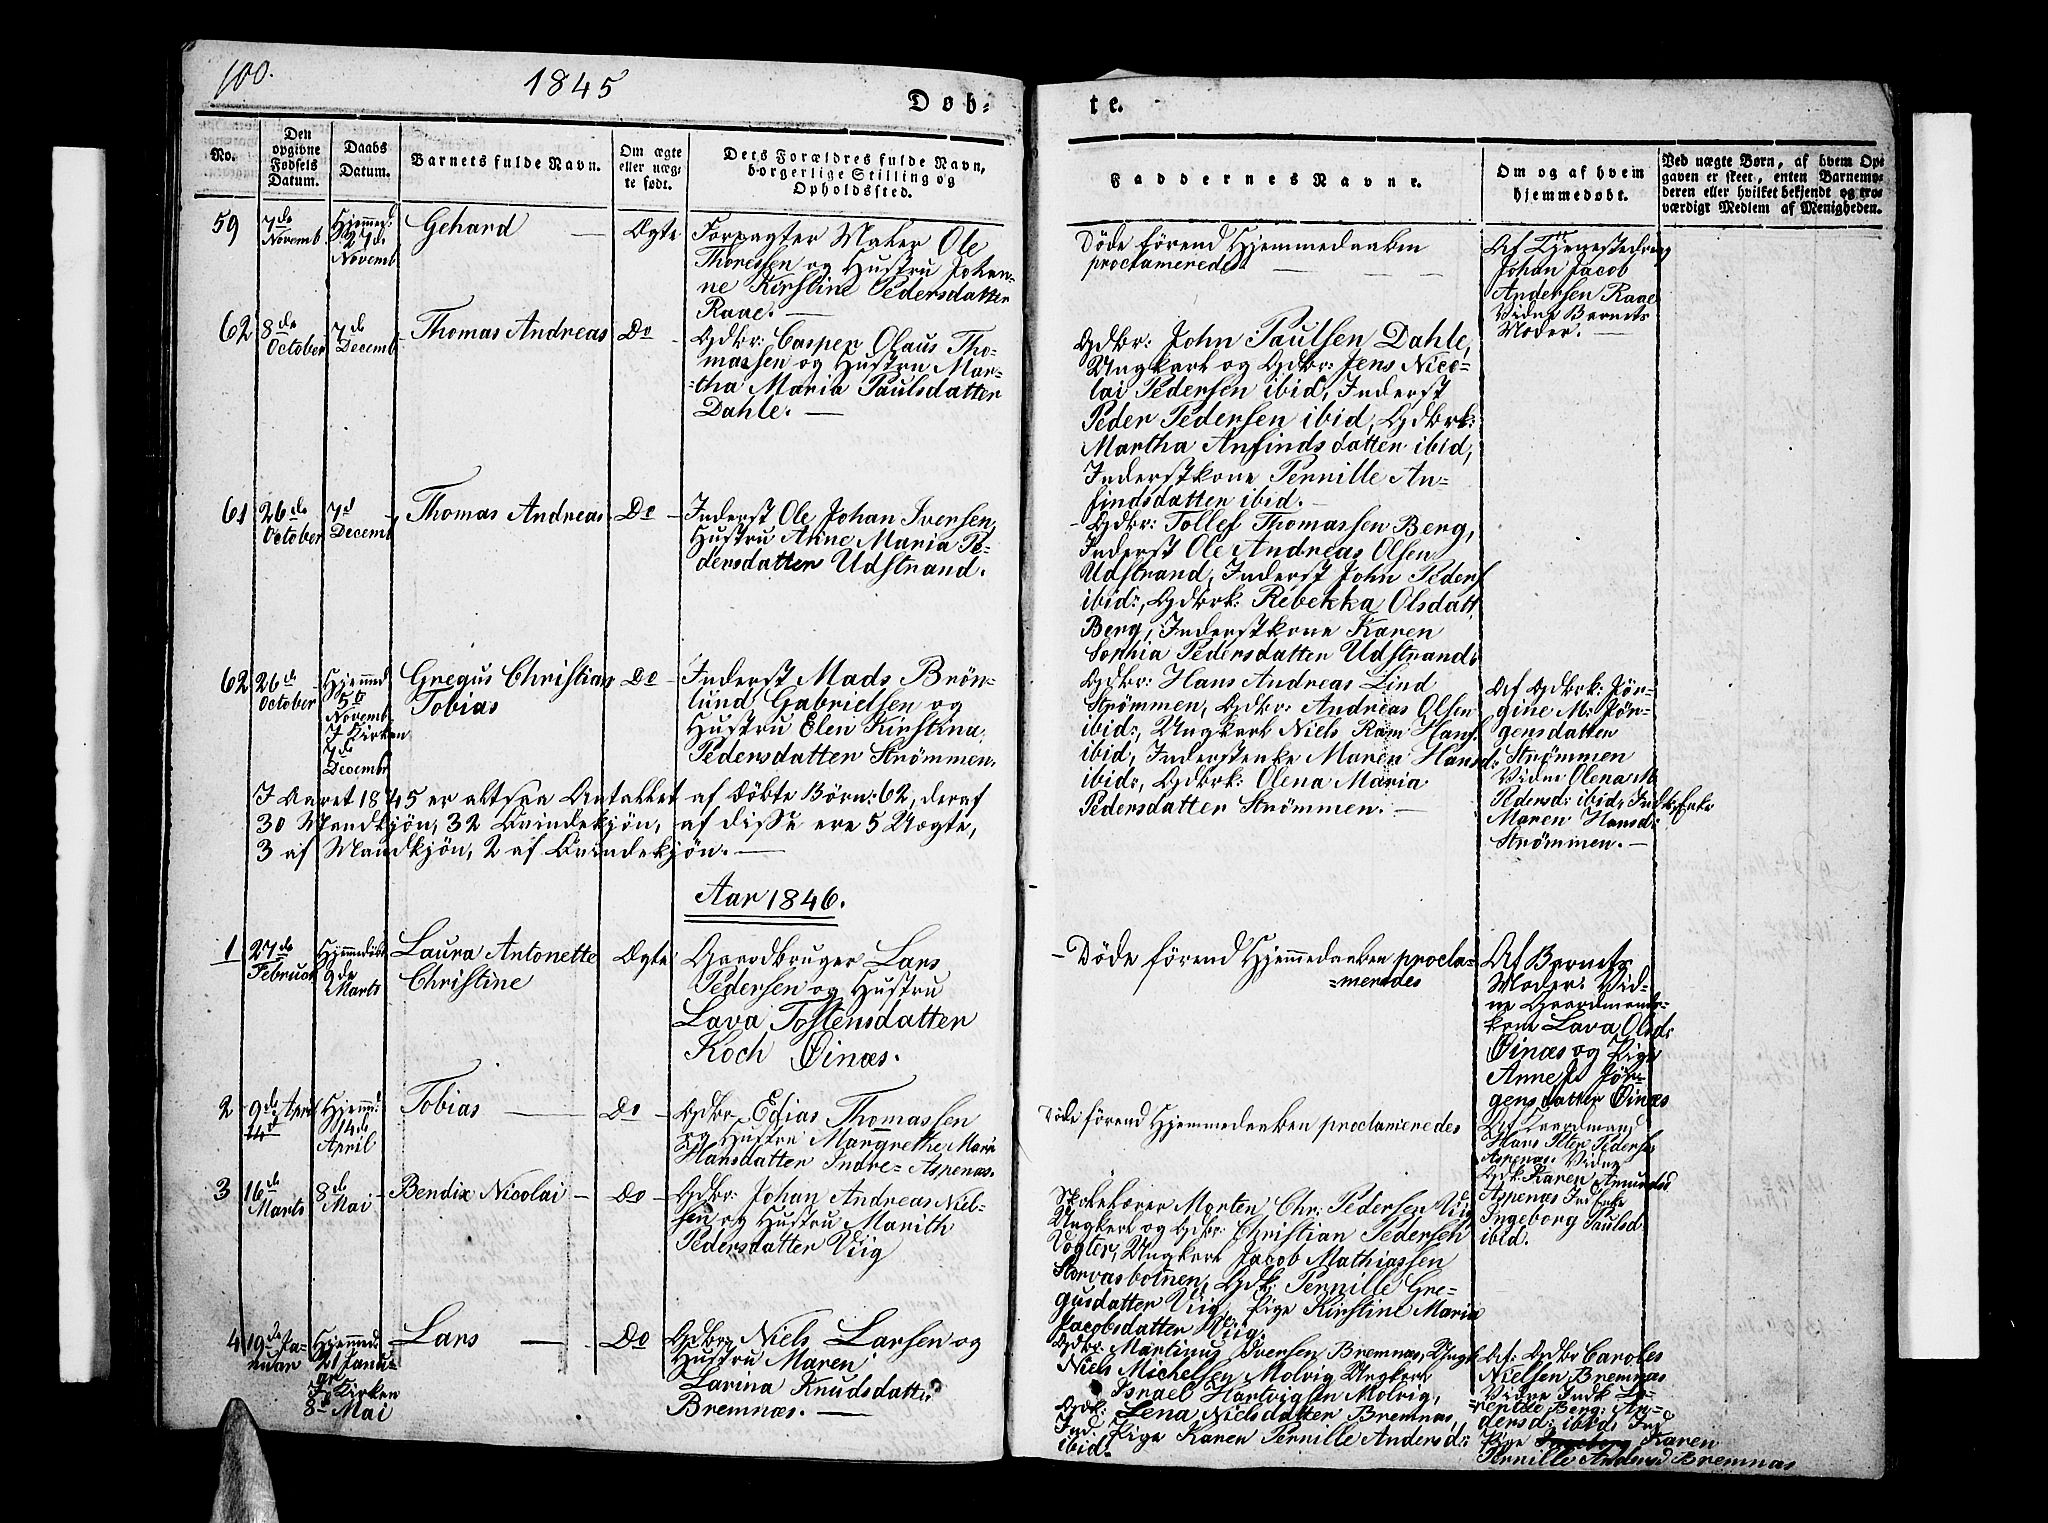 100.
1845
Døb-
te.
No.
Den opgivne Fødsels Datum.
Daabs Datum.
Barnets fulde Navn.
Om ægte eller uæg- te født.
Dets Forældres fulde Navn, borgerlige Stilling og Opholdssted.
Faddernes Navne.
Om og af hvem hjemmedøbt.
Ved uægte Børn, af hvem Op- gaven er skeet, enten Barnemo- deren eller hvilket bekjendt og tro- værdigt Medlem af Menigheden.
59
7de
Novemb.
Hjemmed:
27de
Novemb
Gehard
Ægte
Forpagter Maker Ole
Thoressen og Hustru Johan-
ne Kirstine Pedersdatter
Raae.
Døde förend Hjemmedaaben
proclameredes
Af Tjenestedreng
Johan Jacob
Andersen Raae
Vidne Barnets
Moder.
62
8de
October
7de
Decemb
Thomas Andreas
Do
Gdbr: Casper Olaus Tho-
massen og Hustru Mar-
tha Maria Paulsdatter
Dahle.
Gdbr: John Paulsen Dahle,
Ungkarl og Gdbr: Jens Nico-
lai Pedersen ibid, Inderst
Peder Pedersen ibid, Gdbrk:
Martha Anfindsdatter ibid,
Inderstkone Pernille An-
findsdatter ibid.
61
26de
October
7d
Decemb
Thomas Andreas
Do
Inderst Ole Johan Iversen,
Hustru Anne Maria Pe-
dersdatter Udstrand.
Gdbr: Tollef Thomassen Berg,
Inderst Ole Andreas Olsen
Udstrand, Inderst John Peders
ibid:, Gdbrk: Rebekka Olsdatt
Berg, Inderstkone Karen
Sophia Pedersdatter Udstrand:
62
26de
October
Hjemmed
5te
Novemb.
I Kirken
7de
Decembr
Gregus Christian
Tobias
Do
Inderst Mads Brön-
lund Gabrielsen og
Hustru Elen Kirstina
Pedersdatter Strömmen.
Gdbr: Hans Andreas Lind
Strömmen, Gdbr: Andreas Olsen
ibid:, Ungkarl Niels Ram Hans.
ibid, Inderstenke Maren Hansd:
ibid:, Gdbrk: Olena Maria
Pedersdatter Strömmen.
Af Gdbrk: Jör-
gine M: Jör-
gensdatter
Strömmen
Vidne Olena M.
Pedersd: ibid, Indst: Enke
Maren Hansd:
Strömmen.
I Aaret 1845 er altsaa Antallet af döbte Börn: 62, deraf
30 Mandkjön, 32 Qvindekjön, af disse ere 5 Uægte,
3 af Mandkjön, 2 af Qvindekjön.
Aar 1846.
1
27de
Februar
Hjemmedöbt
9de
Marts
Laura Antonette
Christine
Ægte
Gaardbruger Lars
Pedersen og Hustru
Lava Tostensdatter
Koch Öinæs.
Döde förend Hjemmedaaben procla-
meredes
Af Barnets
Moder: Vid-
ne Gaardmands-
kone Lava Olsd:
Öinæs og Pige
Anne J. Jör-
gensdatter Öinæs
2
9de April
14d
Hjemmd:
14de
April
Tobias
Do
Gdbr Edias Thomassen
og Hustru Margrethe Marie
Hansdatter Indre-Aspenæs.
Döde förend Hjemmedaaben proclameredes
Af Gaardmand
Hans Peter Peders:
Aspenæs: Vidne
Gdk: Karen Amundsd
Aspenæs Ind Enke
Ingeborg Paulsd
ibid.
3
16de
Marts
8de
Mai
Bendix Nicolai
Do
Gdbr: Johan Andreas Niel-
sen og Hustru Marith
Pedersdatter Viig
Skolelærer Morten Chr: Pedersen Viig
Ungkarl og Gdbr: Christian Pedersen
Vogter, Ungkarl Jacob Mathiassen
Storvasbotnen, Gdk: Pernille Gre-
gusdatter Viig, Pige Kirstine Maria
Jacobsdatter Viig.
4
19de Ja-
nuar
Hjemmed
21 Janu-
ar
I Kirken
8d Mai
Lars
Do
Gdbr: Niels Larsen og
Hustru Maren
Larina Knudsdatter
Bremnæs.
Gdbr: Martinus Iversen Bremnæs, Ungk
Niels Michelsen Molvig Ungkarl
Israel Hartvigsen Molvig,
Gdk: Lena Nielsdatter Bremnæs,
Ind. Pige Karen Pernille Andersd:
ibid.
Af: Gdbr Caroles
Nielsen Bremnæs
Vidne Indk Lo-
rentze Berg: An-
dersd: ibid, Ind
Pige Ingeborg Karen
Pernille Andersd Bremnæs